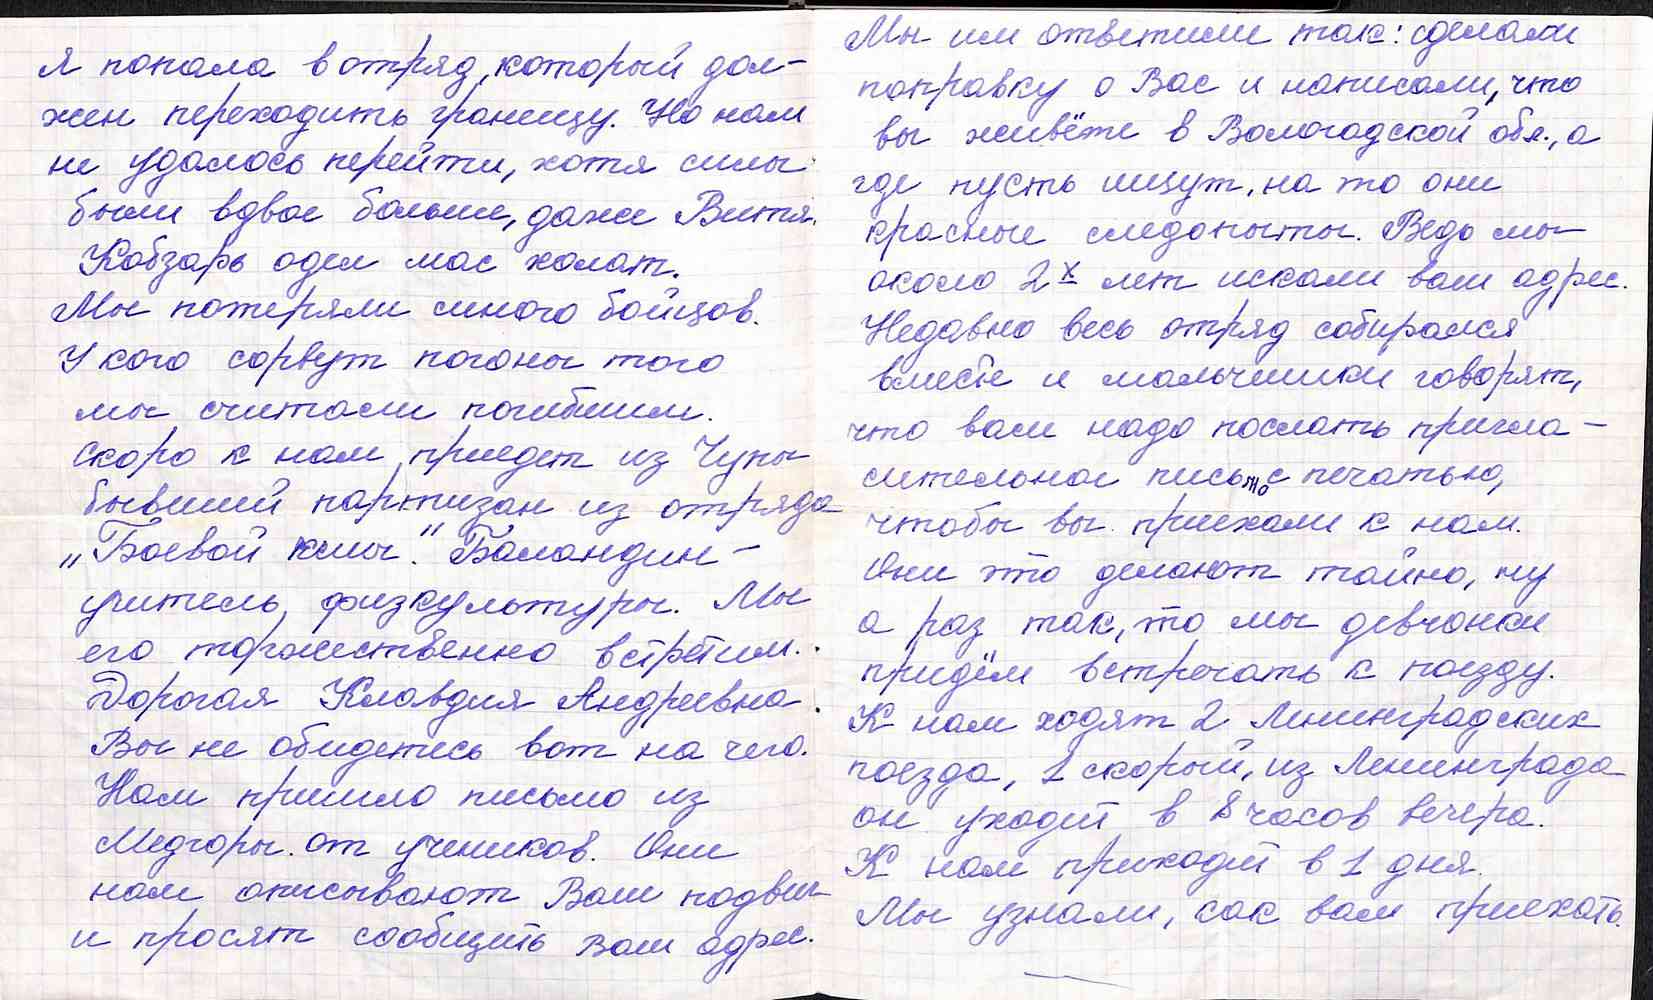 Я попала в отряд, который дол-
жен переходить границу. Но нам
не удалось перейти, хотя силы
были вдвое больше, даже Витя
Кобзарь одел мас халат.
Мы потеряли много бойцов.
У кого сорвут погоны того
мы считали погибшим.
Скоро к нам приедет из Чупы
бывший партизан из отряда
„Боевой клич". Баландин -
учитель физкультуры. Мы
его торжественно встретим.
Дорогая Клавдия Андреевна.
Вы не обидетесь вот на чего.
Нам пришло письмо из
Медгоры. от учеников. Они
нам описывают Ваш подвиг
и просят сообщить Ваш адрес.
Мы им ответили так: сделали
поправку о Вас и написали, что
вы живёте в Вологодской обл., а
где пусть ищут, на то они
красные следопыты. Ведь мы
около 2х лет искали ваш адрес.
Недавно весь отряд собирался
вместе и мальчишки говорят,
что вам надо послать пригла-
сительное письмо с печатью,
чтобы вы приехали к нам.
Они это делают тайно, ну
а раз так, то мы девчонки
придём встречать к поезду.
К нам ходят 2 Ленинградских
поезда, 1 скорый, из Ленинграда
он уходит в 8 часов вечера.
К нам приходит в 1 дня.
Мы узнали, как вам приехать.